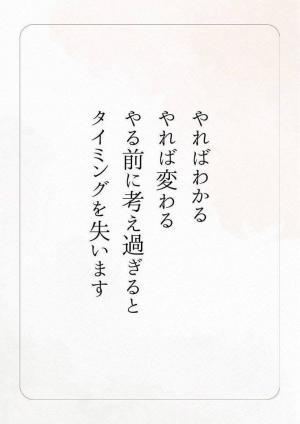 やればわかる
やれば変わる
やる前に考え過ぎると
タイミングを失います